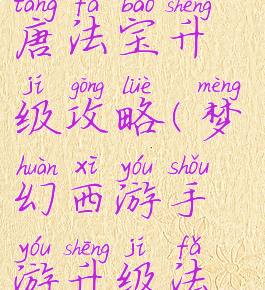 táng fǎ bǎo shēng
唐法宝升
jí gōng lüè mèng
级攻略(梦
huàn xī yóu shǒu
幻西游手
yóu shēng jí fǎ
游升级法